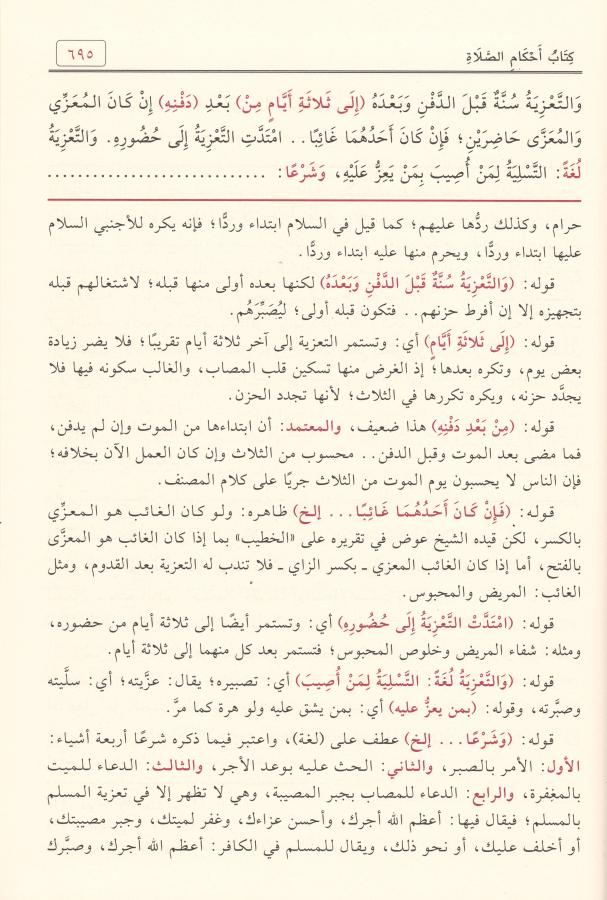 كِتَابُ أَحْكَامِ الصَّلَاةِ
٦٩٥
وَالتَّعْزِيَةُ سُنَّةٌ قَبْلَ الدَّفْنِ وَبَعْدَهُ (إِلَى ثَلَاثَةِ أَيَّامٍ مِنْ) بَعْدِ (دَفْنِهِ) إِنْ كَانَ المُعَزِّي
وَالمُعَزَّى حَاضِرَيْنِ؛ فَإِنْ كَانَ أَحَدُهُمَا غَائِبًا.. امْتَدَّتِ التَّعْزِيَةُ إِلَى حُضُورِهِ. وَالتَّعْزِيَةُ
لُغَةً: التَّسْلِيَةُ لِمَنْ أُصِيبَ بِمَنْ يَعِزُّ عَلَيْهِ، وَشَرْعًا: ............................
حرام، وكذلك ردُّها عليهم؛ كما قيل في السلام ابتداء وردًّا؛ فإنه يكره للأجنبي السلام
عليها ابتداء وردًّا، ويحرم منها عليه ابتداء وردًّا.
قوله: (وَالتَّعْزِيَةُ سُنَّةٌ قَبْلَ الدَّفْنِ وَبَعْدَهُ) لكنها بعده أولى منها قبله؛ لاشتغالهم قبله
بتجهيزه إلا إن أفرط حزنهم.. فتكون قبله أولى؛ ليُصَبِّرَهُم.
قوله: (إِلَى ثَلَاثَةِ أَيَّامٍ) أي: وتستمر التعزية إلى آخر ثلاثة أيام تقريبًا؛ فلا يضر زيادة
بعض يوم، وتكره بعدها؛ إذ الغرض منها تسكين قلب المصاب، والغالب سكونه فيها فلا
يجدَّد حزنه، ويكره تكررها في الثلاث؛ لأنها تجدد الحزن.
قوله: (مِنْ بَعْدِ دَفْنِهِ) هذا ضعيف، والمعتمد: أن ابتداءها من الموت وإن لم يدفن،
فما مضى بعد الموت وقبل الدفن.. محسوب من الثلاث وإن كان العمل الآن بخلافه؛
فإن الناس لا يحسبون يوم الموت من الثلاث جريًا على كلام المصنف.
قوله: (فَإِنْ كَانَ أَحَدُهُمَا غَائِبًا... إلخ) ظاهره: ولو كان الغائب هو المعزِّي
بالكسر، لكن قيده الشيخ عوض في تقريره على «الخطيب» بما إذا كان الغائب هو المعزَّى
بالفتح، أما إذا كان الغائب المعزي ـ بكسر الزاي ـ فلا تندب له التعزية بعد القدوم، ومثل
الغائب: المريض والمحبوس.
قوله: (امْتَدَّتْ التَّعْزِيَةُ إِلَى حُضُورِهِ) أي: وتستمر أيضًا إلى ثلاثة أيام من حضوره،
ومثله: شفاء المريض وخلوص المحبوس؛ فتستمر بعد كل منهما إلى ثلاثة أيام.
قوله: (وَالتَّعْزِيَةُ لُغَةً: التَّسْلِيَةُ لِمَنْ أُصِيبَ) أي: تصبيره؛ يقال: عزَّيته؛ أي: سلَّيته
وصبَّرته، وقوله: (بمن يعزُّ عليه) أي: بمن يشق عليه ولو هرة كما مرَّ.
قوله: (وَشَرْعًا... إلخ) عطف على (لغة)، واعتبر فيما ذكره شرعًا أربعة أشياء:
الأول: الأمر بالصبر، والثاني: الحث عليه بوعد الأجر، والثالث: الدعاء للميت
بالمغفرة، والرابع: الدعاء للمصاب بجبر المصيبة، وهي لا تظهر إلا في تعزية المسلم
بالمسلم؛ فيقال فيها: أعظم الله أجرك، وأحسن عزاءك، وغفر لميتك، وجبر مصيبتك،
أو أخلف عليك، أو نحو ذلك، ويقال للمسلم في الكافر: أعظم الله أجرك، وصبَّرك